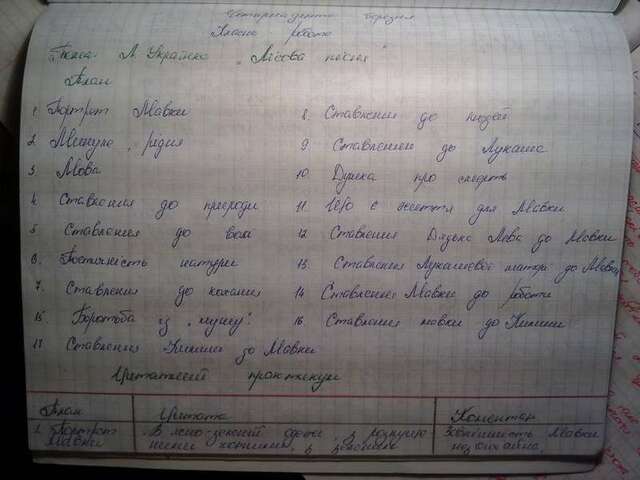 Чотирнадцяте березня
Класна робота
Тема: Л. Українка „Лісова пісня"
План
1 Портрет Мавки
2 Минуле, рідня
3 Мова
4 Ставлення до природи
5 Ставлення до волі
6 Поетичність натури
7. Ставлення до кохання
8. Ставлення до людей
9. Ставлення до Лукаша
10. Думка про смерть
11. Що є життя для Мавки
12. Ставлення Дядька Лева до Мавки
13. Ставлення Лукашевої матері до Мавки
14 Ставлення Мавки до роботи
15. Боротьба із „
16. Ставлення мавки до Килини
17 Ставлення Килини до Мавки
Цитатний практикум
План Цитата Коментар
1. Портрет Мавки
В ясно-зеленій одежі, з розпущеними чорними, з
Зовнішність Мавки незвичайна